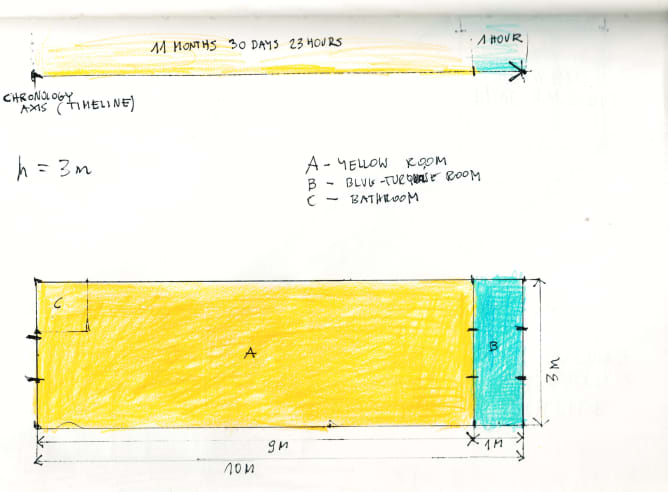 11 MONTHS 30 DAYS 23 HOURS
1 HOUR
CHRONOLOGY
AXIS (TIMELINE)
h = 3m
A - YELLOW ROOM
B - BLUE-TURQUOISE ROOM
C - BATHROOM
C
A
B
3M
9M
1M
10M